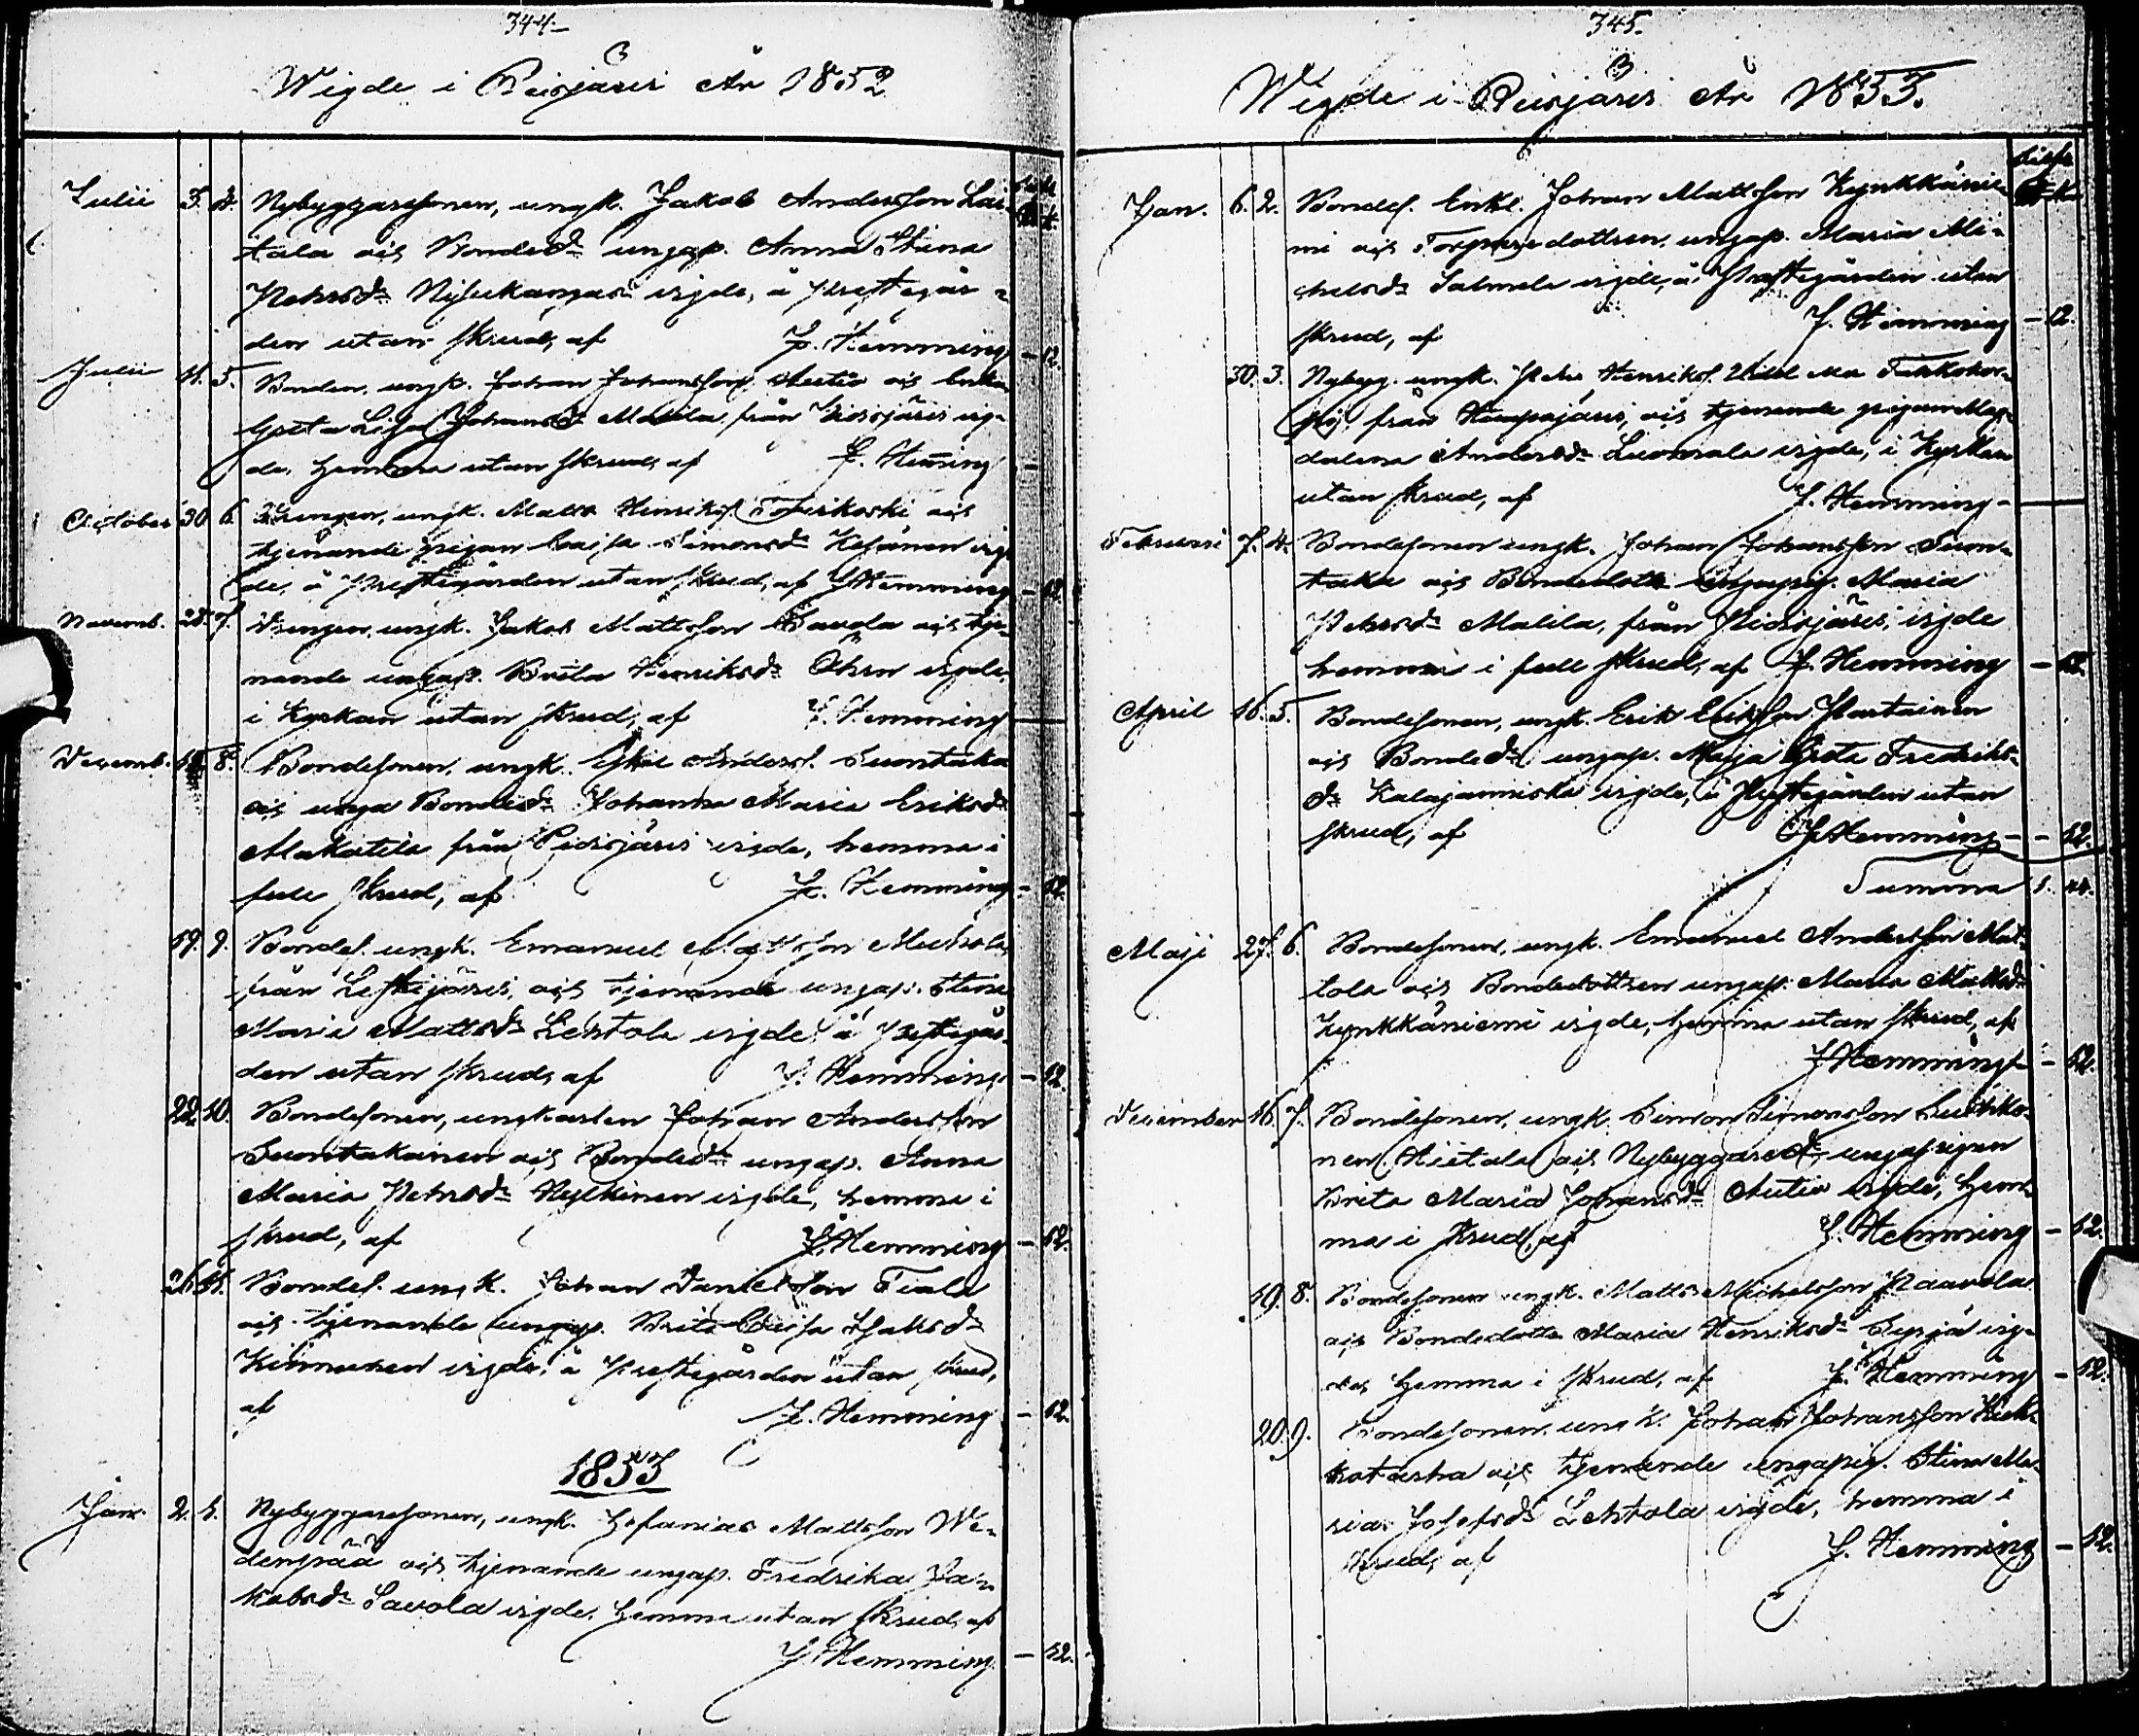 344
Wigde i Pidisjärvi År 1852
Julii 3. 4. Nybyggaresonen, ungk. Jakob Andersson Lai-
tala och Bonded:r ungap. Anna Stina
Pehrsd:r wigde, å Prestegår-
den utan skrud, af J. Hemming - 12.
Julii 11. 5. Bonden, ungk. Johan Johansson Autio och
Greta Johansd:r Malila från Pidisjärvi wig-
de, hemma utan skrud, af J. Heming -
October 30 6. Drengen, ungk. Matts Henriks. och
tjenande pigan Caisa Simonsd:r Kesänen wig-
de, å Prestegården utan skrud, af J Hemming - 12
Novemb. 28. 7. Drengen, ungk. Jakob Mattsson Savola och tje-
nande ungap. Brita Henriksd:r wigde,
i Kyrkan utan skrud, af J. Hemming
Decemb. 8. Bondesonen, ungk. Anderss. Suontaka
och unga Bonded:r Johanna Maria Eriksd:r
Makatila från Pidisjärvi wigde, hemma i
full skrud, af J. Hemming - 12
19. 9. Bondes. ungk. Emanuel Mattsson
från Lestijärvi, och tjenande ungap. Stina
Maria Mattsd:r Lehtola wigde, å Prestegår-
den utan skrud, af J. Hemming - 12.
22. 10. Bondesonen, ungkarlen Johan Andersson
Suontakanen och Bonded:r ungap. Anna
Maria Pehrsd:r Nylkänen wigde, hemma i
skrud, af J. Hemming - 12.
26 11. Bondes. ungk. Johan Danielsson Tiala
och tjenande ungap. Brita Caisa
Kinnunen wigde, å Prestegården utan skrud,
af J. Hemming - 12.
1853
Jan. 2. 1. Nybyggaresonen, ungk. Zefanias Mattsson We-
denpää och tjenande ungap. Fredrika Ja-
kobsd:r Savola wigde, hemma utan skrud, af
J. Hemming - 12.
345.
Wigde i Pidisjärvi År 1853.
Jan. 6. 2. Bondes. Enkl. Johan Mattsson Kynkkänie-
mi och Torparedottren, ungap. Maria Mi-
chelsd:r Salmela wigde, å Prestegården utan
skrud, af J. Hemming - 12.
30. 3. Nybyg. ungk. Pehr Henrikss.
från och tjenande pigan Mag-
dalena Andersd:r wigde, i Kyrkan
utan skrud, af J. Hemming -
Februari 7. 4. Bondesonen ungk. Johan Johansson Suon-
taka och Bondedottr. ungapig. Maria
Pehrsd:r Malila, från Pidisjärvi, wigde
hemma i full skrud, af J. Hemming - 12.
April 16. 5. Bondesonen, ungk. Erik Eriksson Partainen
och Bonded:r ungap. Maja Greta Fredriks-
d:r Kalajanniska wigde, i Prestegården utan
skrud, af J Hemming - - 12.
Summa 1. 44.
Maji 27. 6. Bondesonen, ungk. Emanuel Andersson Mat-
tola och Bondedottren ungap. Maria Mattsd:r
Kynkkäniemi wigde, hemma utan skrud, af
J Hemming - 12.
December 16. 7. Bondesonen, ungk. Simon Simonsson
nen Hietala och Nybyggared:r ungapigan
Brita Maria Johansd:r Autio wigde, hem-
ma i skrud, af J. Hemming - 12.
19. 8. Bondesonen ungk. Matts Michelsson Paavola
och Bondedottr. Maria Henriksd:r wig-
de, hemma i skrud, af J. Hemming - 12.
20. 9. Bondesonen, ungk. Johan Johansson
och tjenande ungapig. Stina Ma-
ria Josefsd:r Lehtola wigde, hemma i
skrud, af J. Hemming - 12.